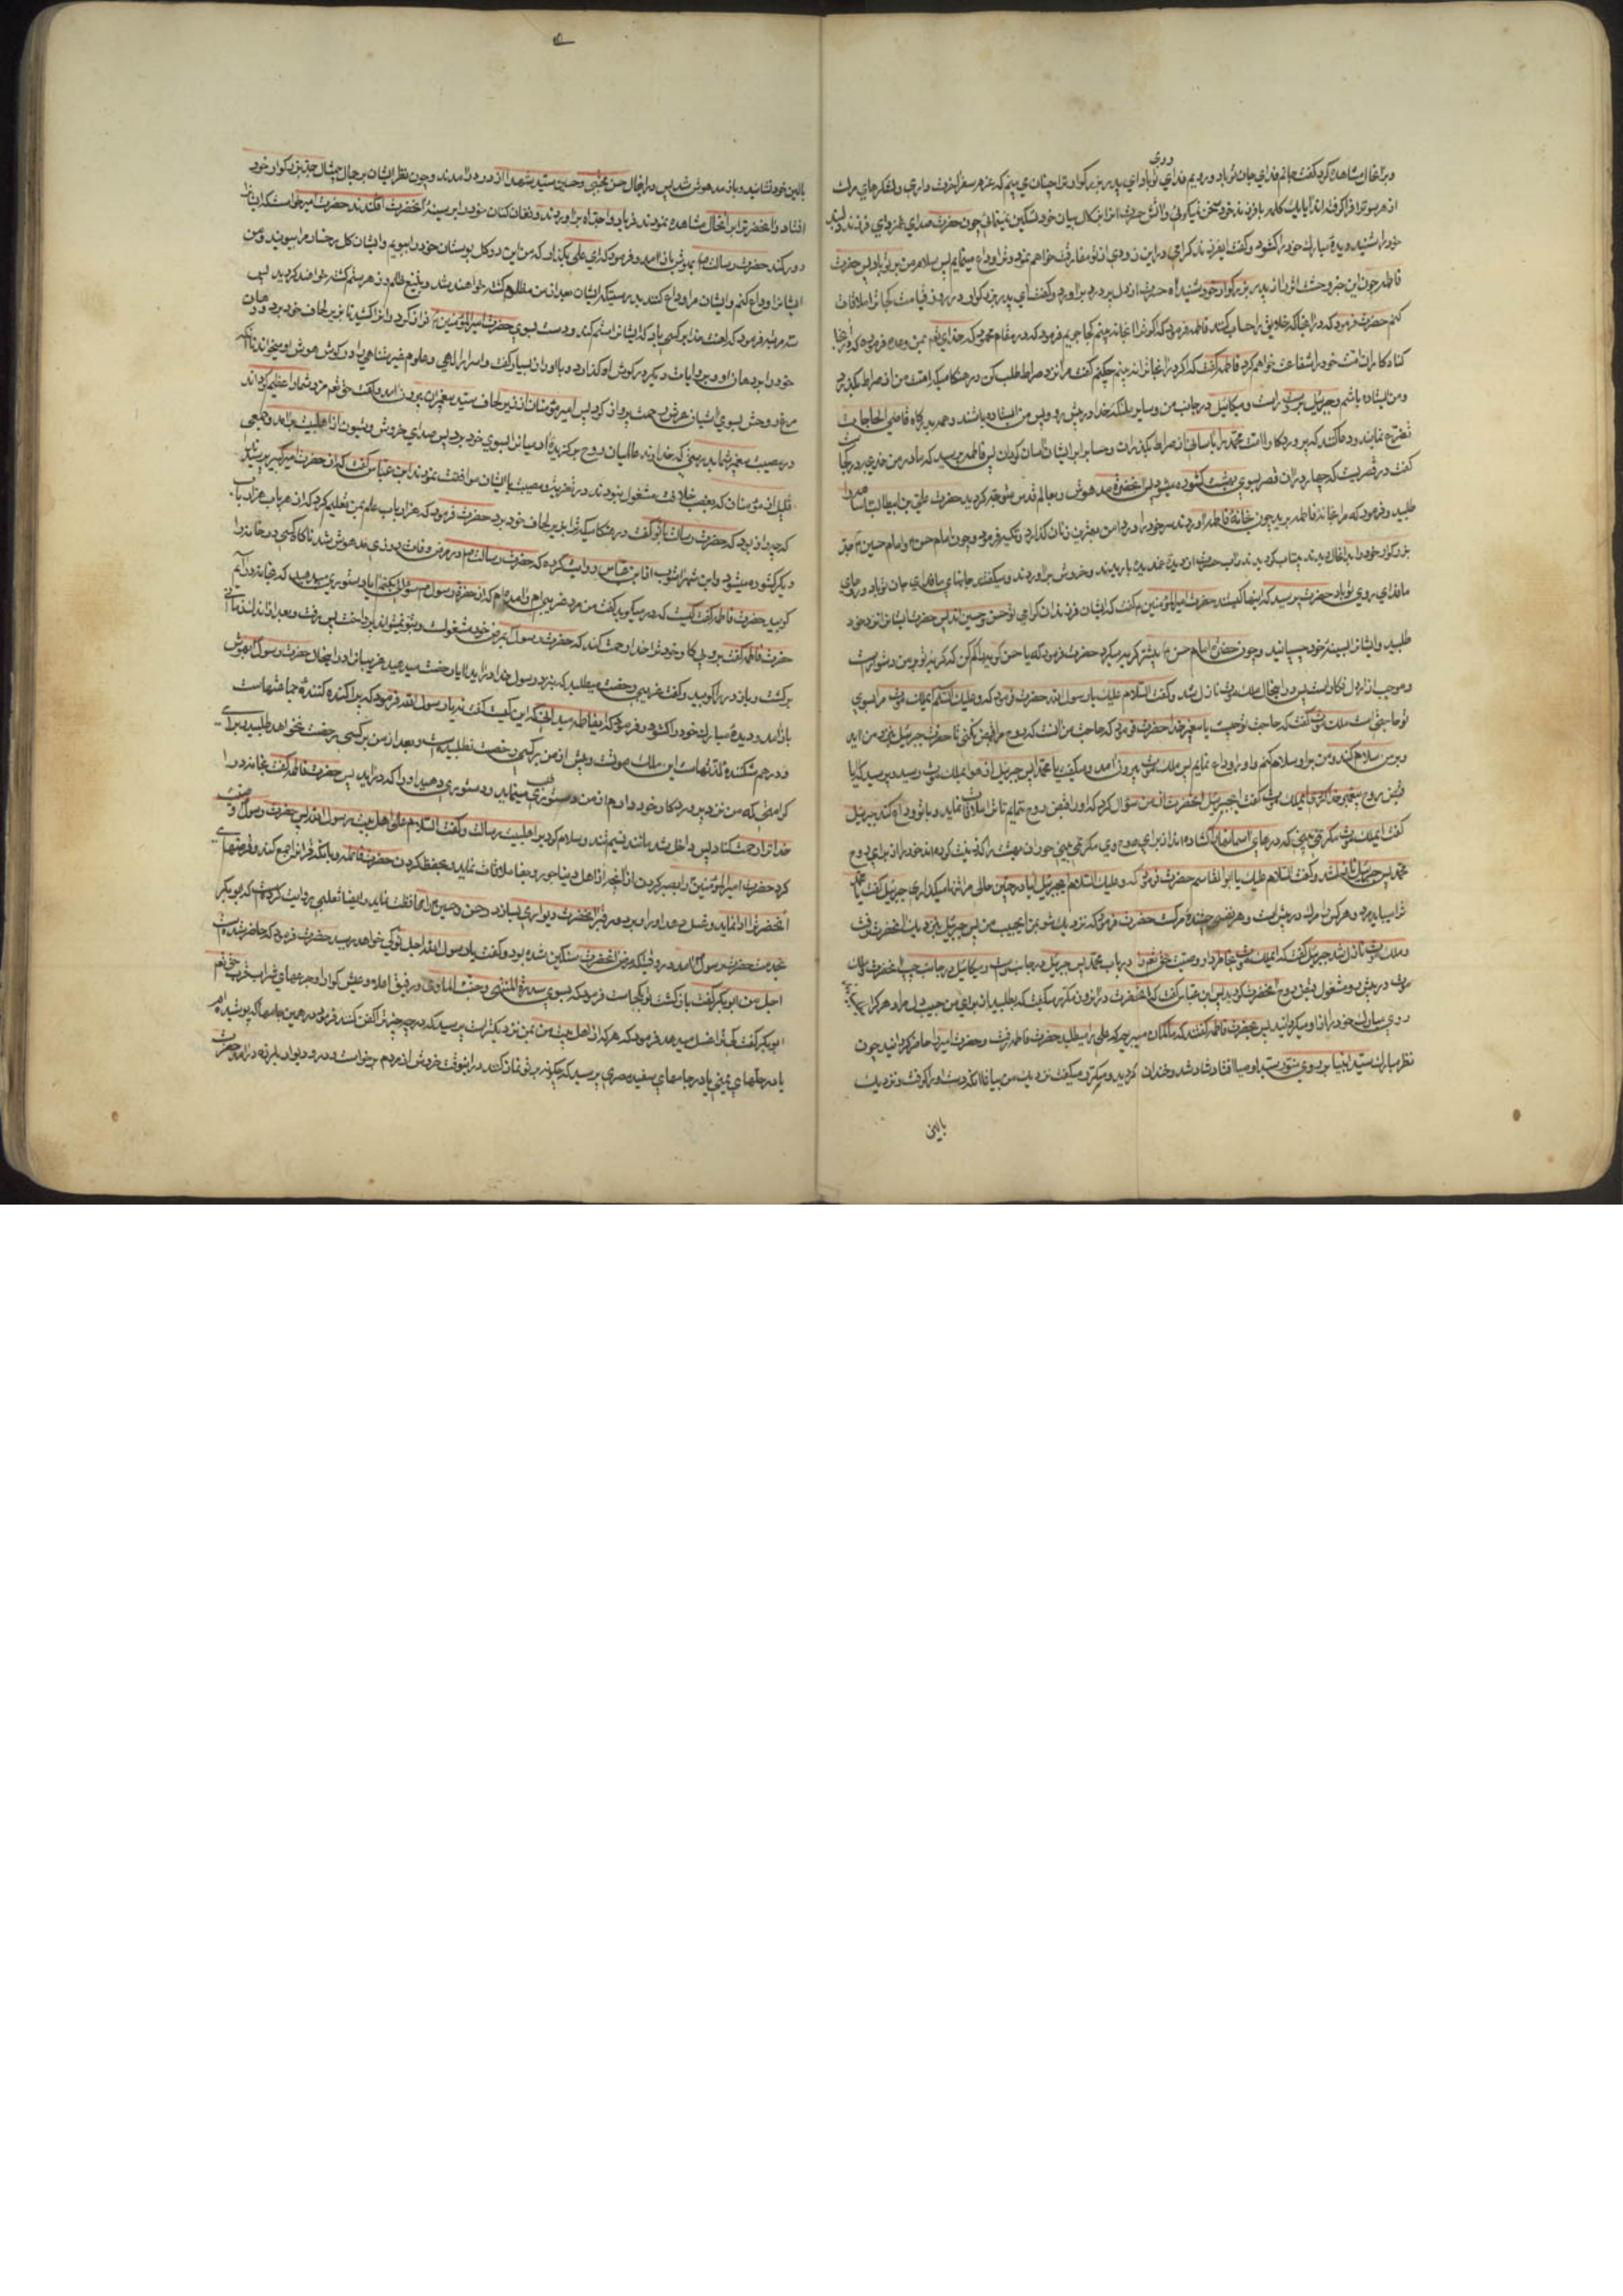 روی
و برا بحال مشاهده کرد گفت جانم فدای جان تو باد و رویم فدای تو باد ای پدر بزرگوار ترا چنان می بینم که عزم سفر آخرت داری و لشکرهای مرک
از هر سو ترا فرا گرفته اند آیا یک کلمه با فرزند خود سخن نمیگوئی و آتش حسرت او را بزلال بیان خود تسکین نمینمائی چون حضرت صدای غمزدای فرزند دلبند
خود را شنید دیدۀ مبارک خود را کشود و گفت ایفرزند گرامی در این زودی از تو مفارقت خواهم نمود و ترا وداع مینمایم پس سلام من بر تو باد پس حضرت
فاطمه چون این خبر وحشت اثر را از پدر بزرگوار خود شنید آه حسرت از دل پر درد برآورد و گفت ای پدر بزرگوار در روز قیامت کجا ترا ملاقات
کنم حضرت فرمود که در آنجا که خلایق را حساب کنند فاطمه فرمود که اگر ترا آنجا نه بینم کجا جویم فرمود که در مقام محمود که خدای تعم بمن وعده فرموده که در آنجا
کناه کاران امت خود را شفاعت خواهم کرد فاطمه گفت که اگر در آنجا ترا نه بینم چکنم گفت مرا نزد صراط طلب کن در هنگامیکه امت من از صراط بگذرد
و من ایستاده باشم و جبرئیل بر دست راست و میکائیل در جانب من و سایر ملئکه خدا در پیش رو و پس من ایستاده باشند و همه بدرگاه قاضی الحاجات
تضرع نمایند و دعا کنند که پروردگارا امت محمد را بسلامتی از صراط بگذران و حساب را بر ایشان آسان گردان پس فاطمه پرسید که مادر من خدیجه در کجاست
گفت در قصریست که چهار در از آن قصر بسوی بهشت کشوده میشود پس آنحضرت مدهوش و بعالم قدس متوجه گردید حضرت علی بن ابیطالب اسما را
طلبید و فرمود که مرا بخانۀ فاطمه برید چون بخانۀ فاطمه آوردند سر خود را در دامن بهترین زنان گذارد و تکیه فرمود و چون امام حسن و امام حسین جد
بزرگوار خود را بدانحال دیدند بیتاب گردیدند و آب حسرت از دیدۀ غمدیده باریدند و خروش برآوردند و میگفتند جانهای ما فدای جان تو باد و رویهای
ما فدای روی تو باد حضرت پرسید که اینها کیستند حضرت امیرالمؤمنین م گفت که ایشان فرزندان گرامی تو حسن و حسین اند پس حضرت ایشانرا نزد خود
طلبید و ایشانرا بسینۀ خود چسبانید و چون حضرت امام حسن بیشتر گریه میکرد حضرت فرمود که یا حسن گریه را کم کن که گریۀ تو بر من دشوار است
و موجب آزار دل فکار است پس در اینحال ملک موت نازل شد و گفت السلام علیک یا رسول الله حضرت فرمود که و علیک السلام ای ملک موت مرا بسوی
تو حاجتی است ملک موت گفت که حاجت تو چیست یا پیغمبر خدا حضرت فرمود که حاجت من آنست که روح مرا قبض نکنی تا حضرت جبرئیل بنزد من آید
و بر من سلام کند و من بر او سلام کنم و او را وداع نمایم پس ملک موت بیرون آمد و میگفت یا محمداه پس جبرئیل از هوا بملک موت رسید و پرسید که آیا
قبض روح پیغمبر خدا کردی ای ملک موت گفت ای جبرئیل آنحضرت از من سؤال کرد که او را قبض روح ننمایم تا ترا ملاقات نماید و با تو وداع کند جبرئیل
گفت ای ملک موت مگر نمی بینی که درهای آسمانها را کشاده اند از برای روح وی مگر نمی بینی حوران بهشت را که زینت کرده اند خود را از برای روح
محمد پس جبرئیل نازل شد و گفت السلام علیک یا ابوالقاسم حضرت فرمود که و علیک السلام ای جبرئیل آیا در چنین حالی مرا تنها میگذاری جبرئیل گفت یا محمد
ترا میباید مرد و هر کس را مرک در پیش است و هر نفسی چشندۀ مرک است حضرت فرمود که نزدیک شو بمن ای حبیب من پس جبرئیل بنزدیک آنحضرت رفت
و ملک موت نازل شد جبرئیل گفت که ای ملک موت بخاطر دار وصیت حق تعم را در باب محمد پس جبرئیل در جانب راست و میکائیل در جانب چپ آنحضرت و ملک
موت در پیش رو مشغول قبض روح آنحضرت گردید پس ابن عباس گفت که آنحضرت در آنروز مکرر میگفت که بطلبید از برای من حبیب دل مرا و هر کرا
روی مبارک خود را از او میگردانید پس بحضرت فاطمه گفتند که ما گمان میبریم که علی را میطلبد حضرت فاطمه رفت و حضرت امیر را حاضر گردانید چون
نظر مبارک سید انبیا بر روی سید اوصیا افتاد شاد شد و خندان گردید و مکرر میگفت نزدیک من بیا یا علی تا آنکه دستش را گرفت و نزدیک
بالین
بالین خود نشانید و باز مدهوش شد پس در اینحال حسن مجتبی و حسین سید شهدا از در درآمدند و چون نظر ایشان بر جمال بیمثال جد بزرگوار خود
افتاد و آنحضرترا بر آنحال مشاهده نمودند فریاد واجداه برآوردند و فغان کنان خود را بر سینۀ آنحضرت افکندند حضرت امیر خواست که ایشانرا
دور کند حضرت رسالت بهوش باز آمد و فرمود که ای علی بگذار که من این دو کل بوستان خود را ببویم و ایشان کل رخسار مرا ببویند و من
ایشانرا وداع کنم و ایشان مرا وداع کنند بدرستیکه ایشان بعد از من مظلوم کشته خواهند شد و بتیغ ظلم و زهر ستم کشته خواهند گردید پس
سه مرتبه فرمود که لعنت خدا بر کسی باد که ایشانرا ستم کند و دست بسوی حضرت امیرالمؤمنین دراز کرد و او را کشید تا بزیر لحاف خود برد و دهان
خود را بر دهان او و بروایات دیگر بر گوش او گذارد و با او راز بسیار گفت و اسرار الهی و علوم غیر متناهی را در گوش هوش او میخواند تا آنکه
مرغ روحش بسوی آشیان عرش رحمت پرواز کرد پس امیرمؤمنان از زیر لحاف سید پیغمبران بیرون آمد و گفت حق تعم مزد شما را عظیم گرداند
در مصیبت پیغمبر شما بدرستی که خداوند عالمیان روح برگزیدۀ آدمیانرا بسوی خود برد پس صدای خروش و شیون از اهلبیت برآمد و جمعی
قلیل از مؤمنان که بغصب خلافت مشغول نبودند در تعزیه و مصیبت با ایشان موافقت نمودند ابن عباس گفت که از حضرت امیر پرسیدند
که چه راز بود که حضرت رسالت با تو گفت در هنگامیکه ترا بزیر لحاف خود برد حضرت فرمود که هزار باب علم بمن تعلیم کرد که از هر باب هزار باب
دیگر کشوده میشود و ابن شهرآشوب از ابن عباس روایت کرده که حضرت رسالت در مرض وفات روزی مدهوش شد ناگاه کسی در خانه را
کوبید حضرت فاطمه گفت کیست که در میکوبد گفت من مرد غریبم
حضرت فاطمه گفت برو پی کار خود ترا خدا رحمت کند که حضرت رسول بمرض خود مشغولست
برگشت و باز در را کوبید و گفت غریبی رخصت میطلبد که بنزد رسول خدا درآید آیا رخصت میدهید غریبانرا در اینحال حضرت رسول بهوش
باز آمد و دیدۀ مبارک خود را کشود و فرمود که ای فاطمه میدانی که این کیست گفت نه یا رسول الله فرمود که پراکنده کنندۀ جماعتهاست
و درهم شکنندۀ لذتهاست این ملک موتست و پیش از من بر کسی رخصت نطلبیده است و بعد از من بر کسی رخصت نخواهد طلبید برای
کرامتی که من نزد پروردگار خود دارم از من دستوری میطلبد دستوری دهید او را که درآید پس حضرت فاطمه گفت بخانه درآ
خدا ترا رحمت کناد پس داخل شد مانند نسیم تند و سلام کرد بر اهلبیت رسالت و گفت السلام علی اهل بیت رسول الله پس حضرت رسول وصیت
کرد حضرت امیرالمؤمنین را بصبر کردن از آنچه از اهل دنیا جور و جفا ملاقات نماید و بحفظ کردن حضرت فاطمه و بآنکه قرآنرا جمع کند و قرضهای
آنحضرترا ادا نماید و غسل دهد او را و بر دور قبر آنحضرت دیواری بسازد و حسن و حسین را محافظت نماید و ایضا ثعلبی روایت کرده است که ابوبکر
بخدمت حضرت رسول آمد در وقتیکه مرض آنحضرت سنگین شده بود و گفت یا رسول الله اجل تو کی خواهد رسید حضرت فرمود که حاضر شده است
اجل من ابوبکر گفت بازگشت تو بکجاست فرمود که بسوی سدرة المنتهی و جنت الماوی و رفیق اعلی و عیش گوارا و جرعهای شراب قرب حق تعم
ابوبکر گفت که ترا غسل میدهد فرمود که هر که از اهل بیت من بمن نزدیکتر است پرسید که در چه چیز ترا کفن کنند فرمود در همین جامها که پوشیده ام
یا در حلهای یمنی یا در جامهای سفید مصری پرسید که چگونه بر تو نماز کنند در اینوقت خروش از مردم برخاست و در و دیوار بلرزه درآمد حضرت